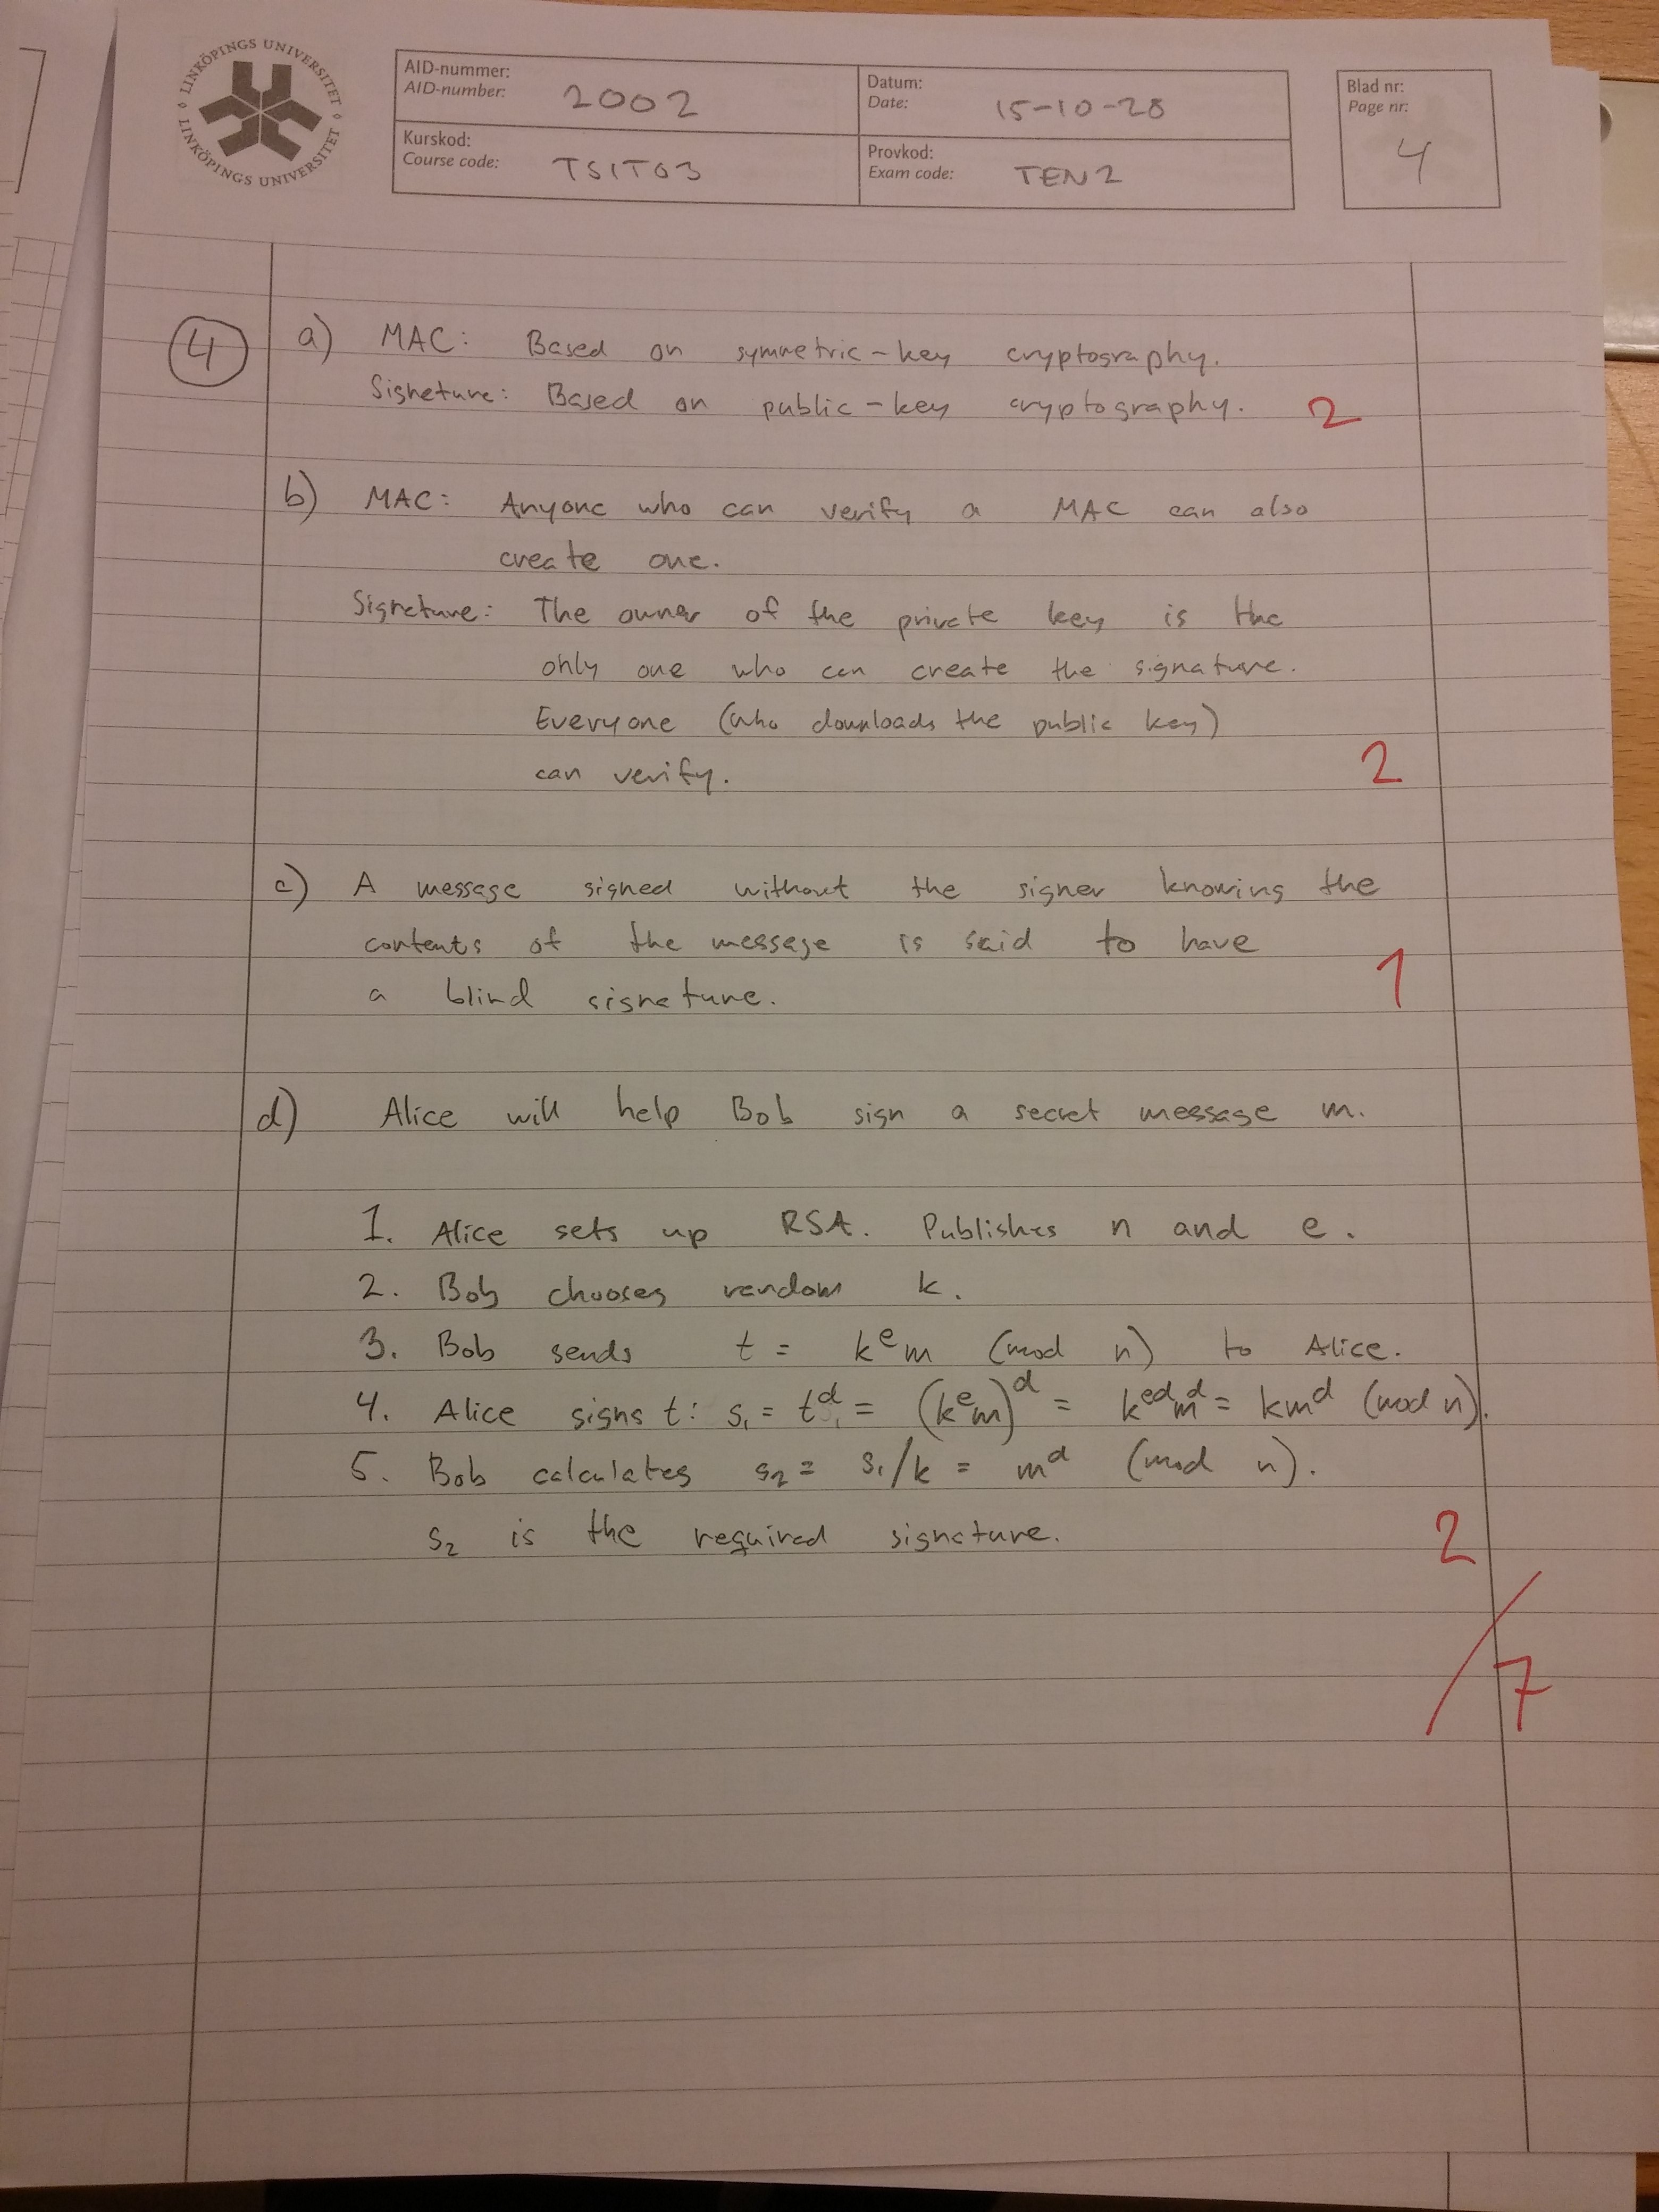 LINKÖPINGS UNIVERSITET
LINKÖPINGS UNIVERSITET
AID-nummer:
AID-number: 2002
Datum:
Date: 15-10-28
Blad nr:
Page nr:
4
Kurskod:
Course code: TSIT03
Provkod:
Exam code: TEN2
4 a) MAC: Based on symmetric-key cryptography.
Signature: Based on public-key cryptography. 2
b) MAC: Anyone who can verify a MAC can also
create one.
Signature: The owner of the private key is the
only one who can create the signature.
Everyone (who downloads the public key)
can verify. 2
c) A message signed without the signer knowing the
contents of the message is said to have
a blind signature. 1
d) Alice will help Bob sign a secret message m.
1. Alice sets up RSA. Publishes n and e.
2. Bob chooses random k.
3. Bob sends t = kᵉm (mod n) to Alice.
4. Alice signs t: s₁ = tᵈ = (kᵉm)ᵈ = kᵉᵈmᵈ = kmᵈ (mod n).
5. Bob calculates s₂ = s₁/k = mᵈ (mod n).
s₂ is the required signature. 2
/7